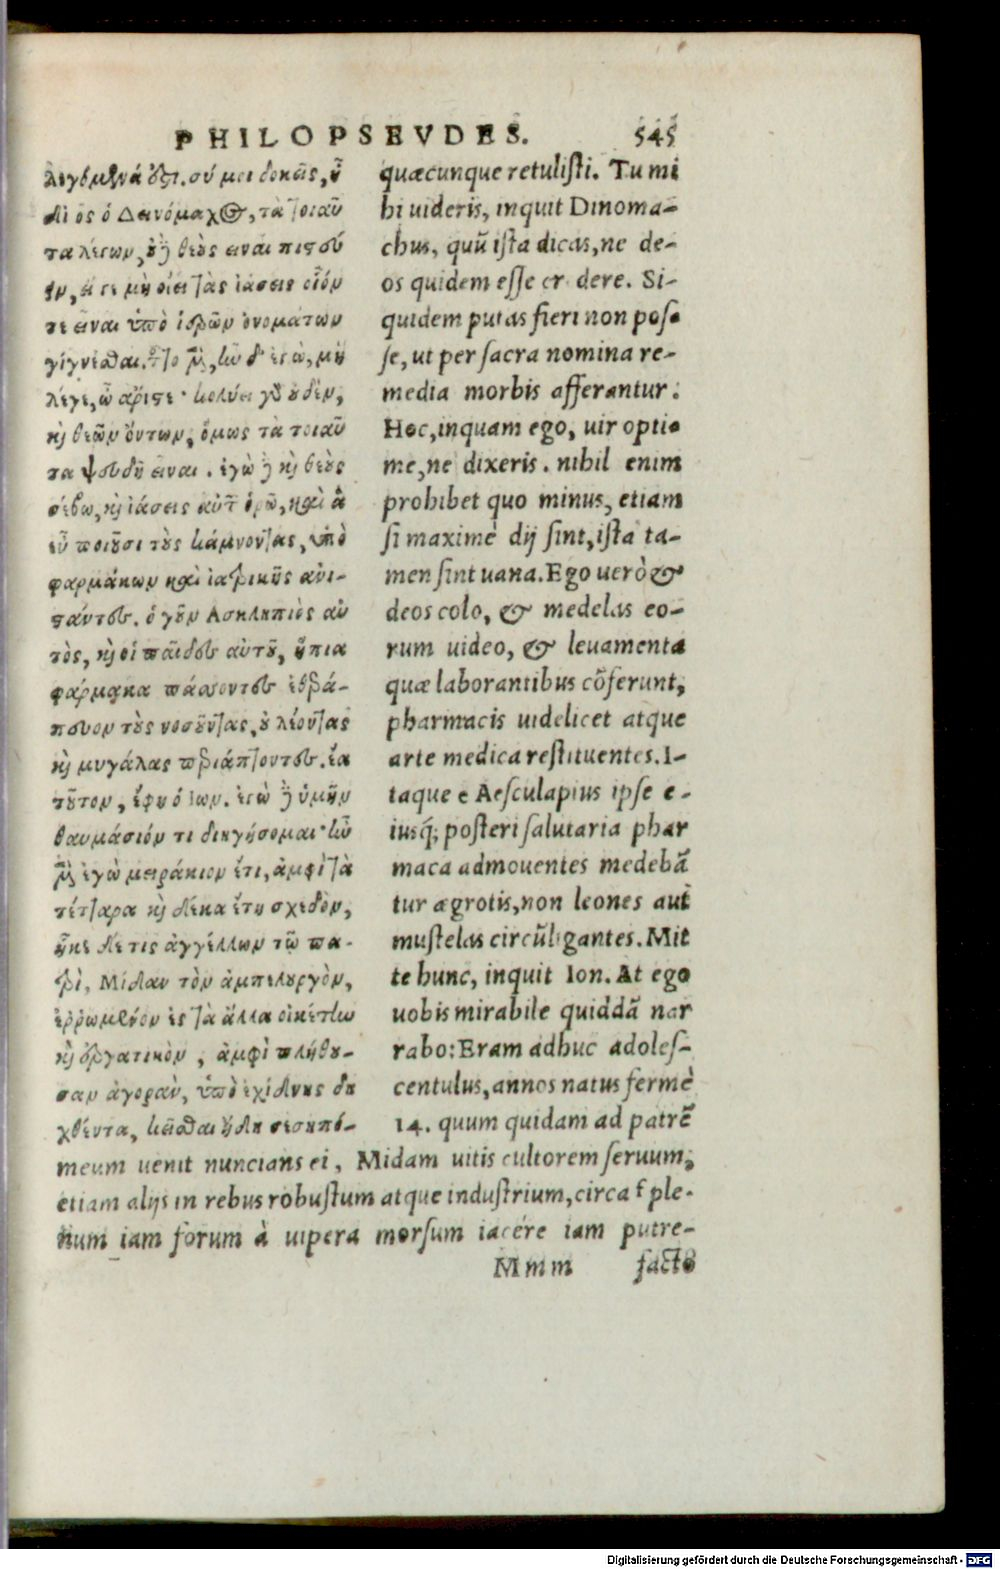 PHILOPSEVDES. 545
λεγόμενά ἐστι. σύ μοι δοκεῖς, ἦ
δὲ ὃς ὁ Δεινόμαχος, τὰ τοιαῦ
τα λέγων, οὐδὲ θεοὺς εἶναι πιστεύ
ειν, εἴ γε μὴ οἴει τὰς ἰάσεις οἷόν
τε εἶναι ὑπὸ ἱερῶν ὀνομάτων
γίγνεσθαι. τοῦτο μὲν, ἦν δ' ἐγὼ, μὴ
λέγε, ὦ ἄριστε· κωλύει γὰρ οὐδὲν,
καὶ θεῶν ὄντων, ὅμως τὰ τοιαῦ
τα ψευδῆ εἶναι. ἐγὼ δὲ καὶ θεοὺς
σέβω, καὶ ἰάσεις αὐτῶν ὁρῶ, καὶ ἃ
εὖ ποιοῦσι τοὺς κάμνοντας, ὑπὸ
φαρμάκων καὶ ἰατρικῆς ἀνι-
στάντες. ὁ γοῦν Ἀσκληπιὸς αὐ
τὸς, καὶ οἱ παῖδες αὐτοῦ, ἤπια
φάρμακα πάσσοντες ἐθερά-
πευον τοὺς νοσοῦντας, οὐ λέοντας
καὶ μυγάλας περιάπτοντες. ἔα
τοῦτον, ἔφη ὁ Ἴων. ἐγὼ δὲ ὑμῖν
θαυμάσιόν τι διηγήσομαι· ἦν
μὲν ἐγὼ μειράκιον ἔτι, ἀμφὶ τὰ
τέτταρα καὶ δέκα ἔτη σχεδὸν,
ἧκε δέ τις ἀγγέλλων τῷ πα-
τρὶ, Μίδαν τὸν ἀμπελουργὸν,
ἐρρωμένον ἐς τὰ ἄλλα οἰκέτην
καὶ ἐργατικὸν, ἀμφὶ πλήθου-
σαν ἀγορὰν, ὑπὸ ἐχίδνης δη
χθέντα, κεῖσθαι ἤδη σεσηπό-
quæcunque retulisti. Tu mi
hi uideris, inquit Dinoma-
chus, quũ ista dicas, ne de-
os quidem esse cr dere. Si-
quidem putas fieri non pos-
se, ut per sacra nomina re-
media morbis afferantur:
Hoc, inquam ego, uir opti-
me, ne dixeris. nihil enim
prohibet quo minus, etiam
si maximè dij sint, ista ta-
men sint uana. Ego uerò &
deos colo, & medelas eo-
rum uideo, & leuamenta
quæ laborantibus cõferunt,
pharmacis uidelicet atque
arte medica restituentes. I-
taque e Aesculapius ipse e-
iusq́; posteri salutaria phar
maca admouentes medebã
tur ægrotis, non leones aut
mustelas circũligantes. Mit
te hunc, inquit Ion. At ego
uobis mirabile quiddã nar
rabo: Eram adhuc adoles-
centulus, annos natus fermè
14. quum quidam ad patrẽ
meum uenit nuncians ei, Midam uitis cultorem seruum,
etiam alijs in rebus robustum atque industrium, circa ple-
num iam forum à uipera morsum iacére iam putre-
Mmm facto
Digitalisierung gefördert durch die Deutsche Forschungsgemeinschaft - DFG